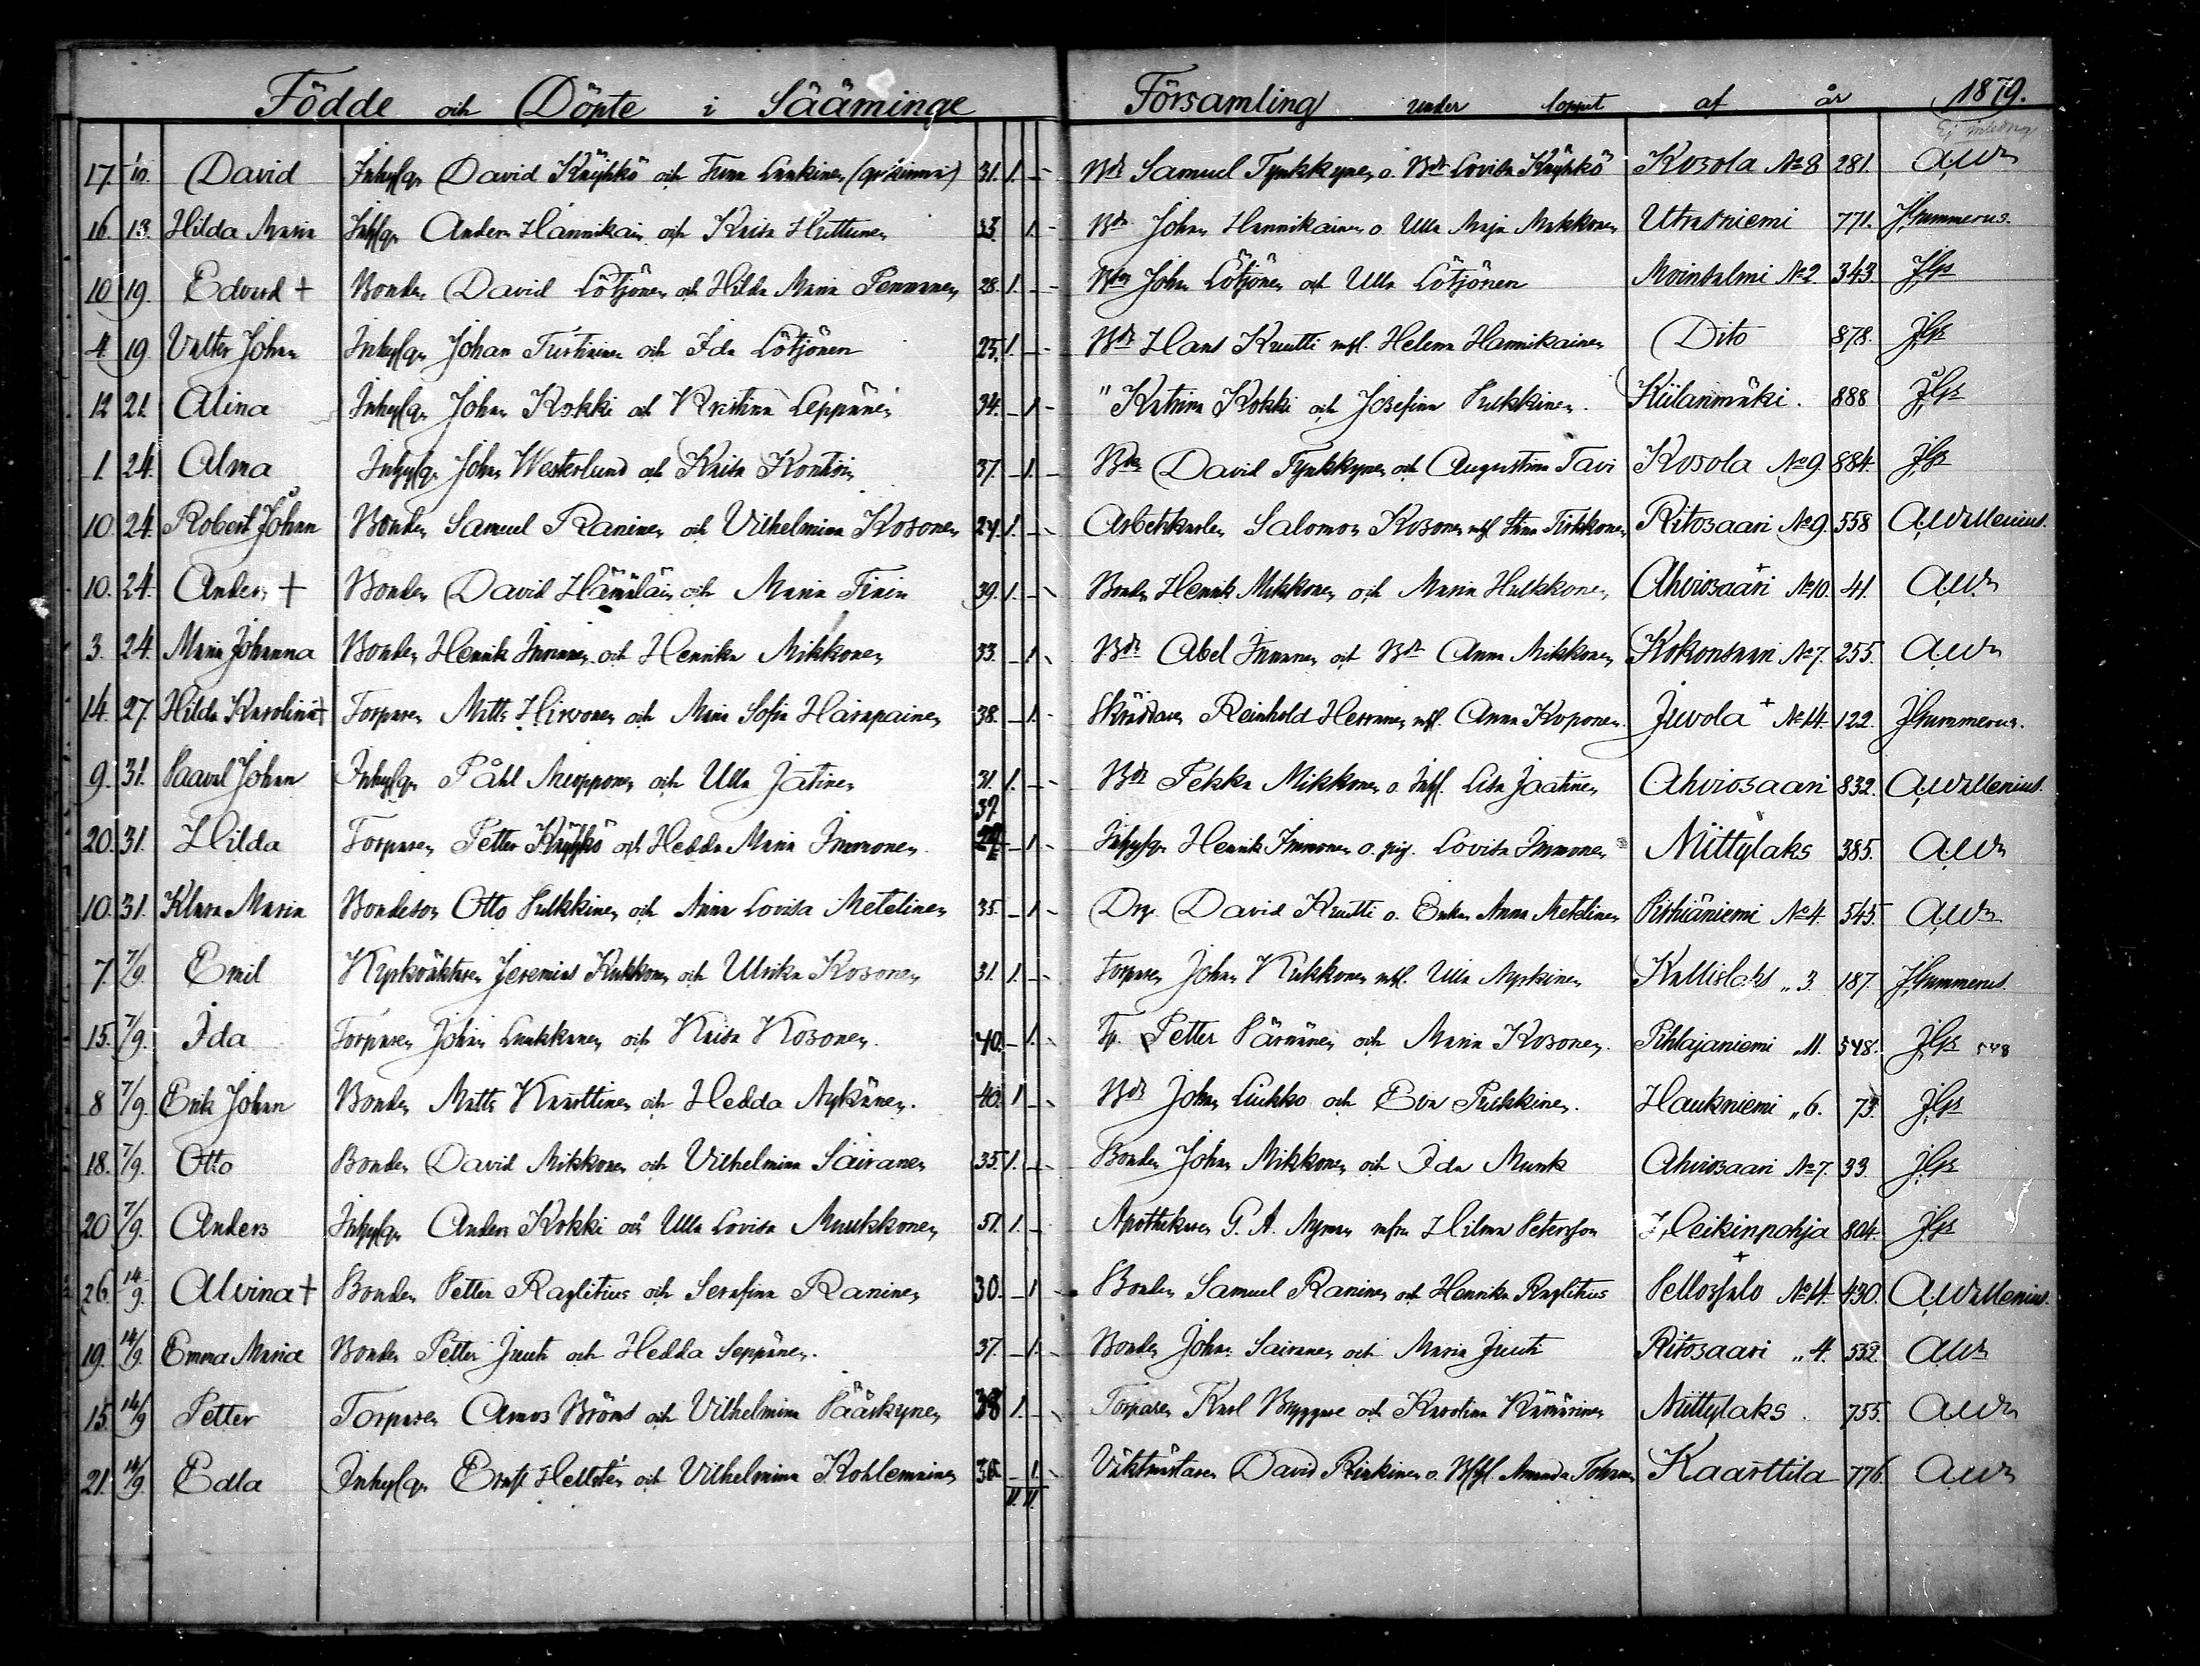 Födde och Döpte i Sääminge Församling under loppet af år 1879.
Ej
17. David Inhysgn David Käyhkö och 31. 1. – Bdr Samuel Tynkkynen o. Bdr Lovisa Käyhkö Kosola No 8 281. A.W
16. 13. Hilda Maria Inhysgn Anders Hannikain. och Kaisa Huttunen 33. 1. – Bdn Johan Hannikainen o. Ulla Maja Makkonen Utrasniemi 771. JGummerus.
10 19. Edvard + Bonden David Lötjönen och Hilda Maria Pennanen 28. 1. – – Bdn Johan Lötjönen och Ulla Lötjönen Moinsalmi No 2 343. JGs
4. 19 Valter Johan Inhysgn Johan Turtiainen och Ida Lötjönen 25. 1. – Bdr Hans Kuutti mhl. Helena Hannikainen Dito 878. JGs
12 21. Alina Inhysgn Johan Kokki och Kristina Leppänen 34. – 1. – " Katrina Kokki och Josefina Pulkkinen. Kiilanmäki. 888 JGs
1. 24. Alma Inhysgn Johan Westerlund och Kaisa 37. – 1. – Bdn David Tynkkynen och Augustina Tavi Kosola No 9 884. JGs
10. 24. Robert Johan Bonden Samuel Raninen och Vilhelmina Kosonen 24. 1. – – Arbetskarlen Salomon Kosonen mhl Stina Tirkkonen Ritosaari No 9. 558 A.Wallenius.
10. 24. Anders + Bonden David Hämäläin och Maria 39. 1. – Bonden Henrik Mikkonen och Maria Hulkkonen Ahvionsaari + No 10. 41. A.W
3. 24. Maria Johanna Bonden Henrik Immonen och Henrika Mikkonen 33. – 1. Bdr Abel Immonen och Bdr Anna Mikkonen Kokonsaari No 7. 255. A.W
14. 27. Hilda Karolina + Torparen Matts Hirvonen och Maria Sofia Haapainen 38. – 1. – Skräddaren Reinhold Herranen mhl. Anna Koponen. Juvola + No 14. 122. JGummerus.
9. 31. Paaval Johan Inhysgn Påhl och Ulla Jatinen 31. 1. – Bdr Pekka Mikkonen o. Inh. Lisa Jaatinen Ahviosaari 832. A.Wallenius.
20. 31. Hilda Torparen Petter Käyhkö och Hedda Maria Immonen. 39. – 1. Inhysgn Henrik Immonen o. pig. Lovisa Immonen Niittylaks 385. A.W
10. 31. Klara Maria Bondeson Otto Pulkkinen och Anna Lovisa Metelinen 35. – 1. – Drg. David Kuutti o. Enkan Anna Metelinen Pistiäniemi No 4. 545. A.W
7. 7/9. Emil Kyrkväktaren Jeremias Kukkonen och Ulrika Kosonen 31. 1. – Torparen Johan Kukkonen mhl. Ulla Nyrkinen Kallislaks „ 3. 187. JGummerus.
15. 7/9. Ida Torparen Johan Laukkanen och Kaisa Kosonen. 40. – 1. Tp. Petter Pärnänen och Maria Kosonen. Pihlajaniemi „ 11. 548. JGs 548
8 7/9. Erik Johan Bonden Matts Kaarttinen och Hedda Nykänen. 40. 1 – Bdr Johan Liukko och Eva Pulkkinen. Haukniemi „ 6. 73. JGs
18. 7/9. Otto Bonden David Mikkonen och Vilhelmina Sairanen 35. 1. – Bonden Johan Mikkonen och Ida Munk Ahvionsaari No 7. 33. JGs
20 7/9. Anders Inhysgn Anders Kokki och Ulla Lovisa Muukkonen 37. 1. – Apothekaren G. A. Nyman mfru Hilma Petersson Heikinpohja 804. JGs
26. 14/9. Alvina + Bonden Petter Raglitius och Serafina Raninen 30. – 1 – Bonden Samuel Raninen och Henrika Raglitius Pellossalo + No 14. 430. A.Wallenius.
19. 14/9. Emma Maria Bonden Petter Juuti och Hedda Seppänen. 37. – 1. Bonden Johan Sairanen och Maria Juuti Ritosaari „ 4. 532. A.W
15. 14/9 Petter Torparen Amos Bröms och Vilhelmina Pääskynen 38 1. – Torparen Karl Bryggare och Karolina Kämäräinen Niittylaks. 755. A.W
21. 14/9. Edla Inhysgn Ernst Hellstén och Vilhelmina Kohlemainen – 1. Väktmästaren David Rinkinen o. Amanda Kaarttila 776. A.W
11. 11.